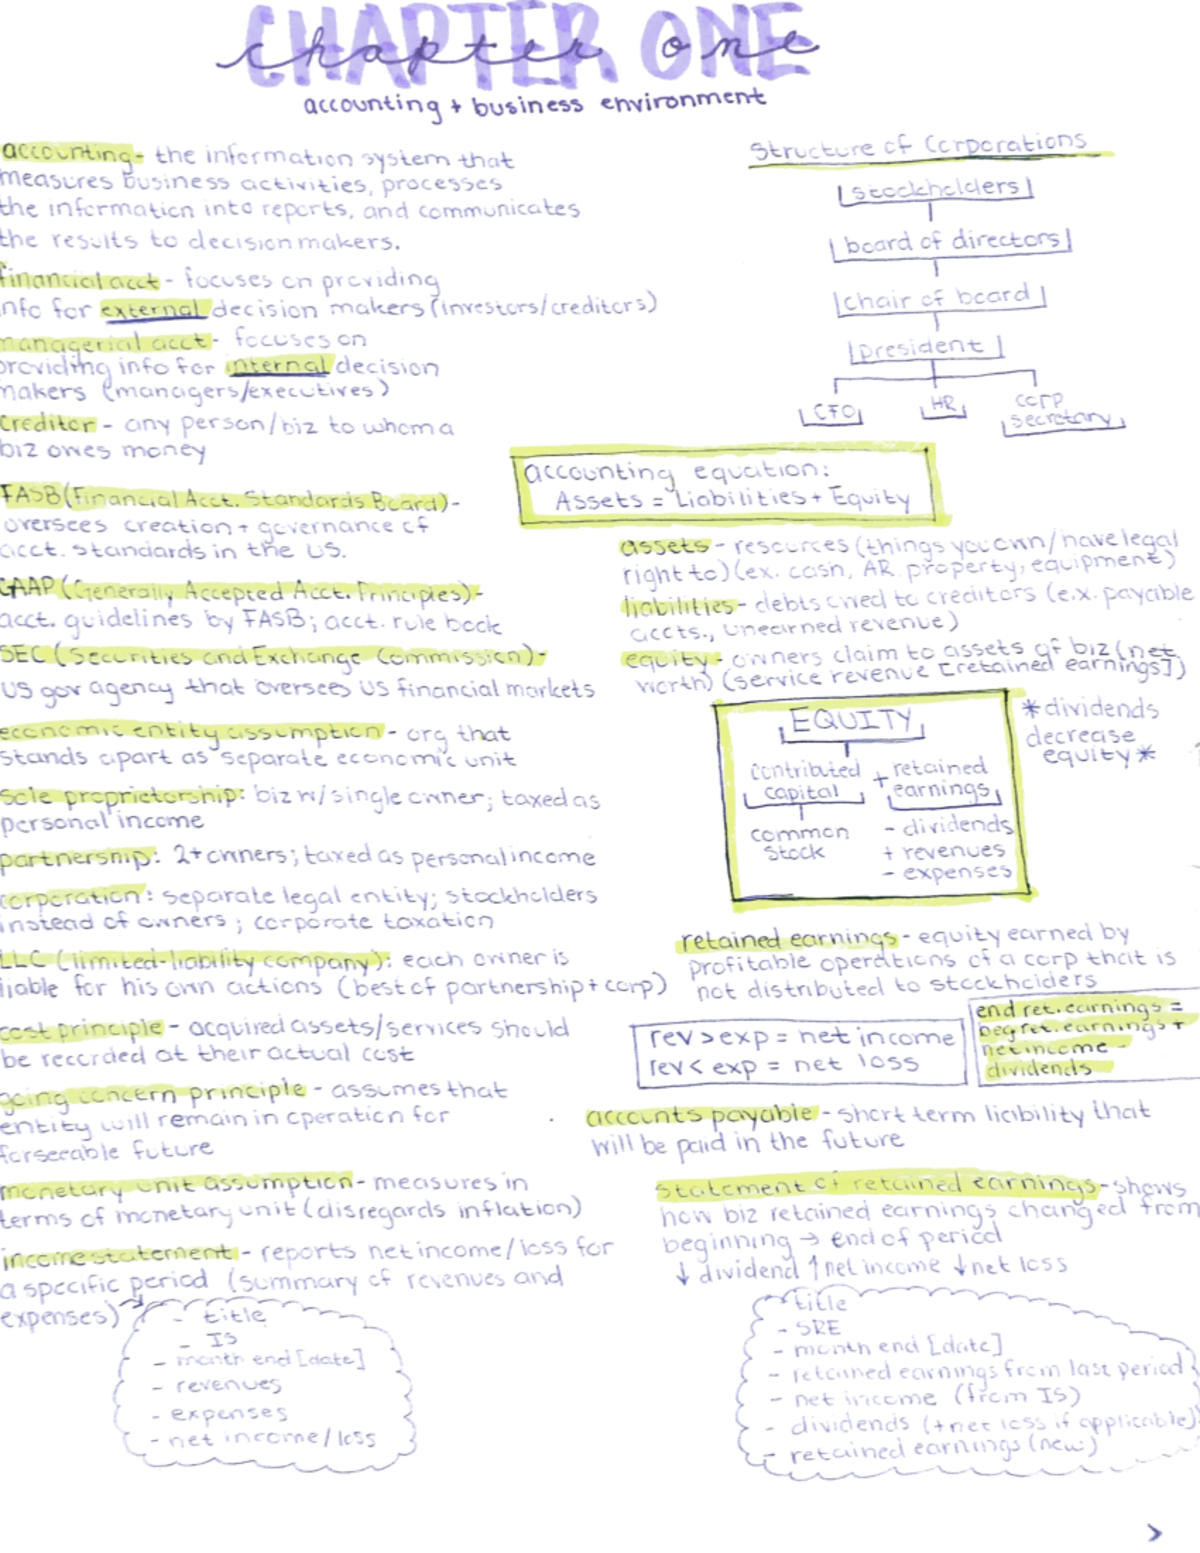 CHAPTER ONE
chapter one
accounting + business environment
accounting - the information system that
measures business activities, processes
the information into reports, and communicates
the results to decision makers.
financial acct - focuses on providing
info for external decision makers (investors/creditors)
managerial acct - focuses on
providing info for internal decision
makers (managers/executives)
creditor - any person/biz to whom a
biz owes money
FASB (Financial Acct. Standards Board) -
oversees creation + governance of
acct. standards in the US.
GAAP (Generally Accepted Acct. Principles) -
acct. guidelines by FASB; acct. rule book
SEC (Securities and Exchange Commission) -
US gov agency that oversees US financial markets
economic entity assumption - org that
stands apart as separate economic unit
sole proprietorship: biz w/ single owner; taxed as
personal income
partnership: 2+ owners; taxed as personal income
corporation: separate legal entity; stockholders
instead of owners; corporate taxation
LLC (limited-liability company): each owner is
liable for his own actions (best of partnership + corp)
cost principle - acquired assets/services should
be recorded at their actual cost
going concern principle - assumes that
entity will remain in operation for
forseeable future
monetary unit assumption - measures in
terms of monetary unit (disregards inflation)
income statement - reports net income/loss for
a specific period (summary of revenues and
expenses)
- title
- IS
- month end [date]
- revenues
- expenses
- net income/loss
Structure of Corporations
stockholders
board of directors
chair of board
president
CFO HR corp
secretary
accounting equation:
Assets = Liabilities + Equity
assets - resources (things you own/have legal
right to) (ex. cash, AR. property, equipment)
liabilities - debts owed to creditors (e.x. payable
accts., unearned revenue)
equity - owners claim to assets of biz (net
worth) (service revenue [retained earnings])
EQUITY
contributed + retained
capital earnings
common - dividends
stock + revenues
- expenses
*dividends
decrease
equity*
retained earnings - equity earned by
profitable operations of a corp that is
not distributed to stockholders
rev > exp = net income
rev < exp = net loss
end ret. earnings =
beg ret. earnings +
net income -
dividends
accounts payable - short term liability that
will be paid in the future
statement of retained earnings - shows
how biz retained earnings changed from
beginning → end of period
↓ dividend ↑ net income ↓ net loss
- title
- SRE
- month end [date]
- retained earnings from last period
- net income (from IS)
- dividends (+ net loss if applicable)
- retained earnings (new)